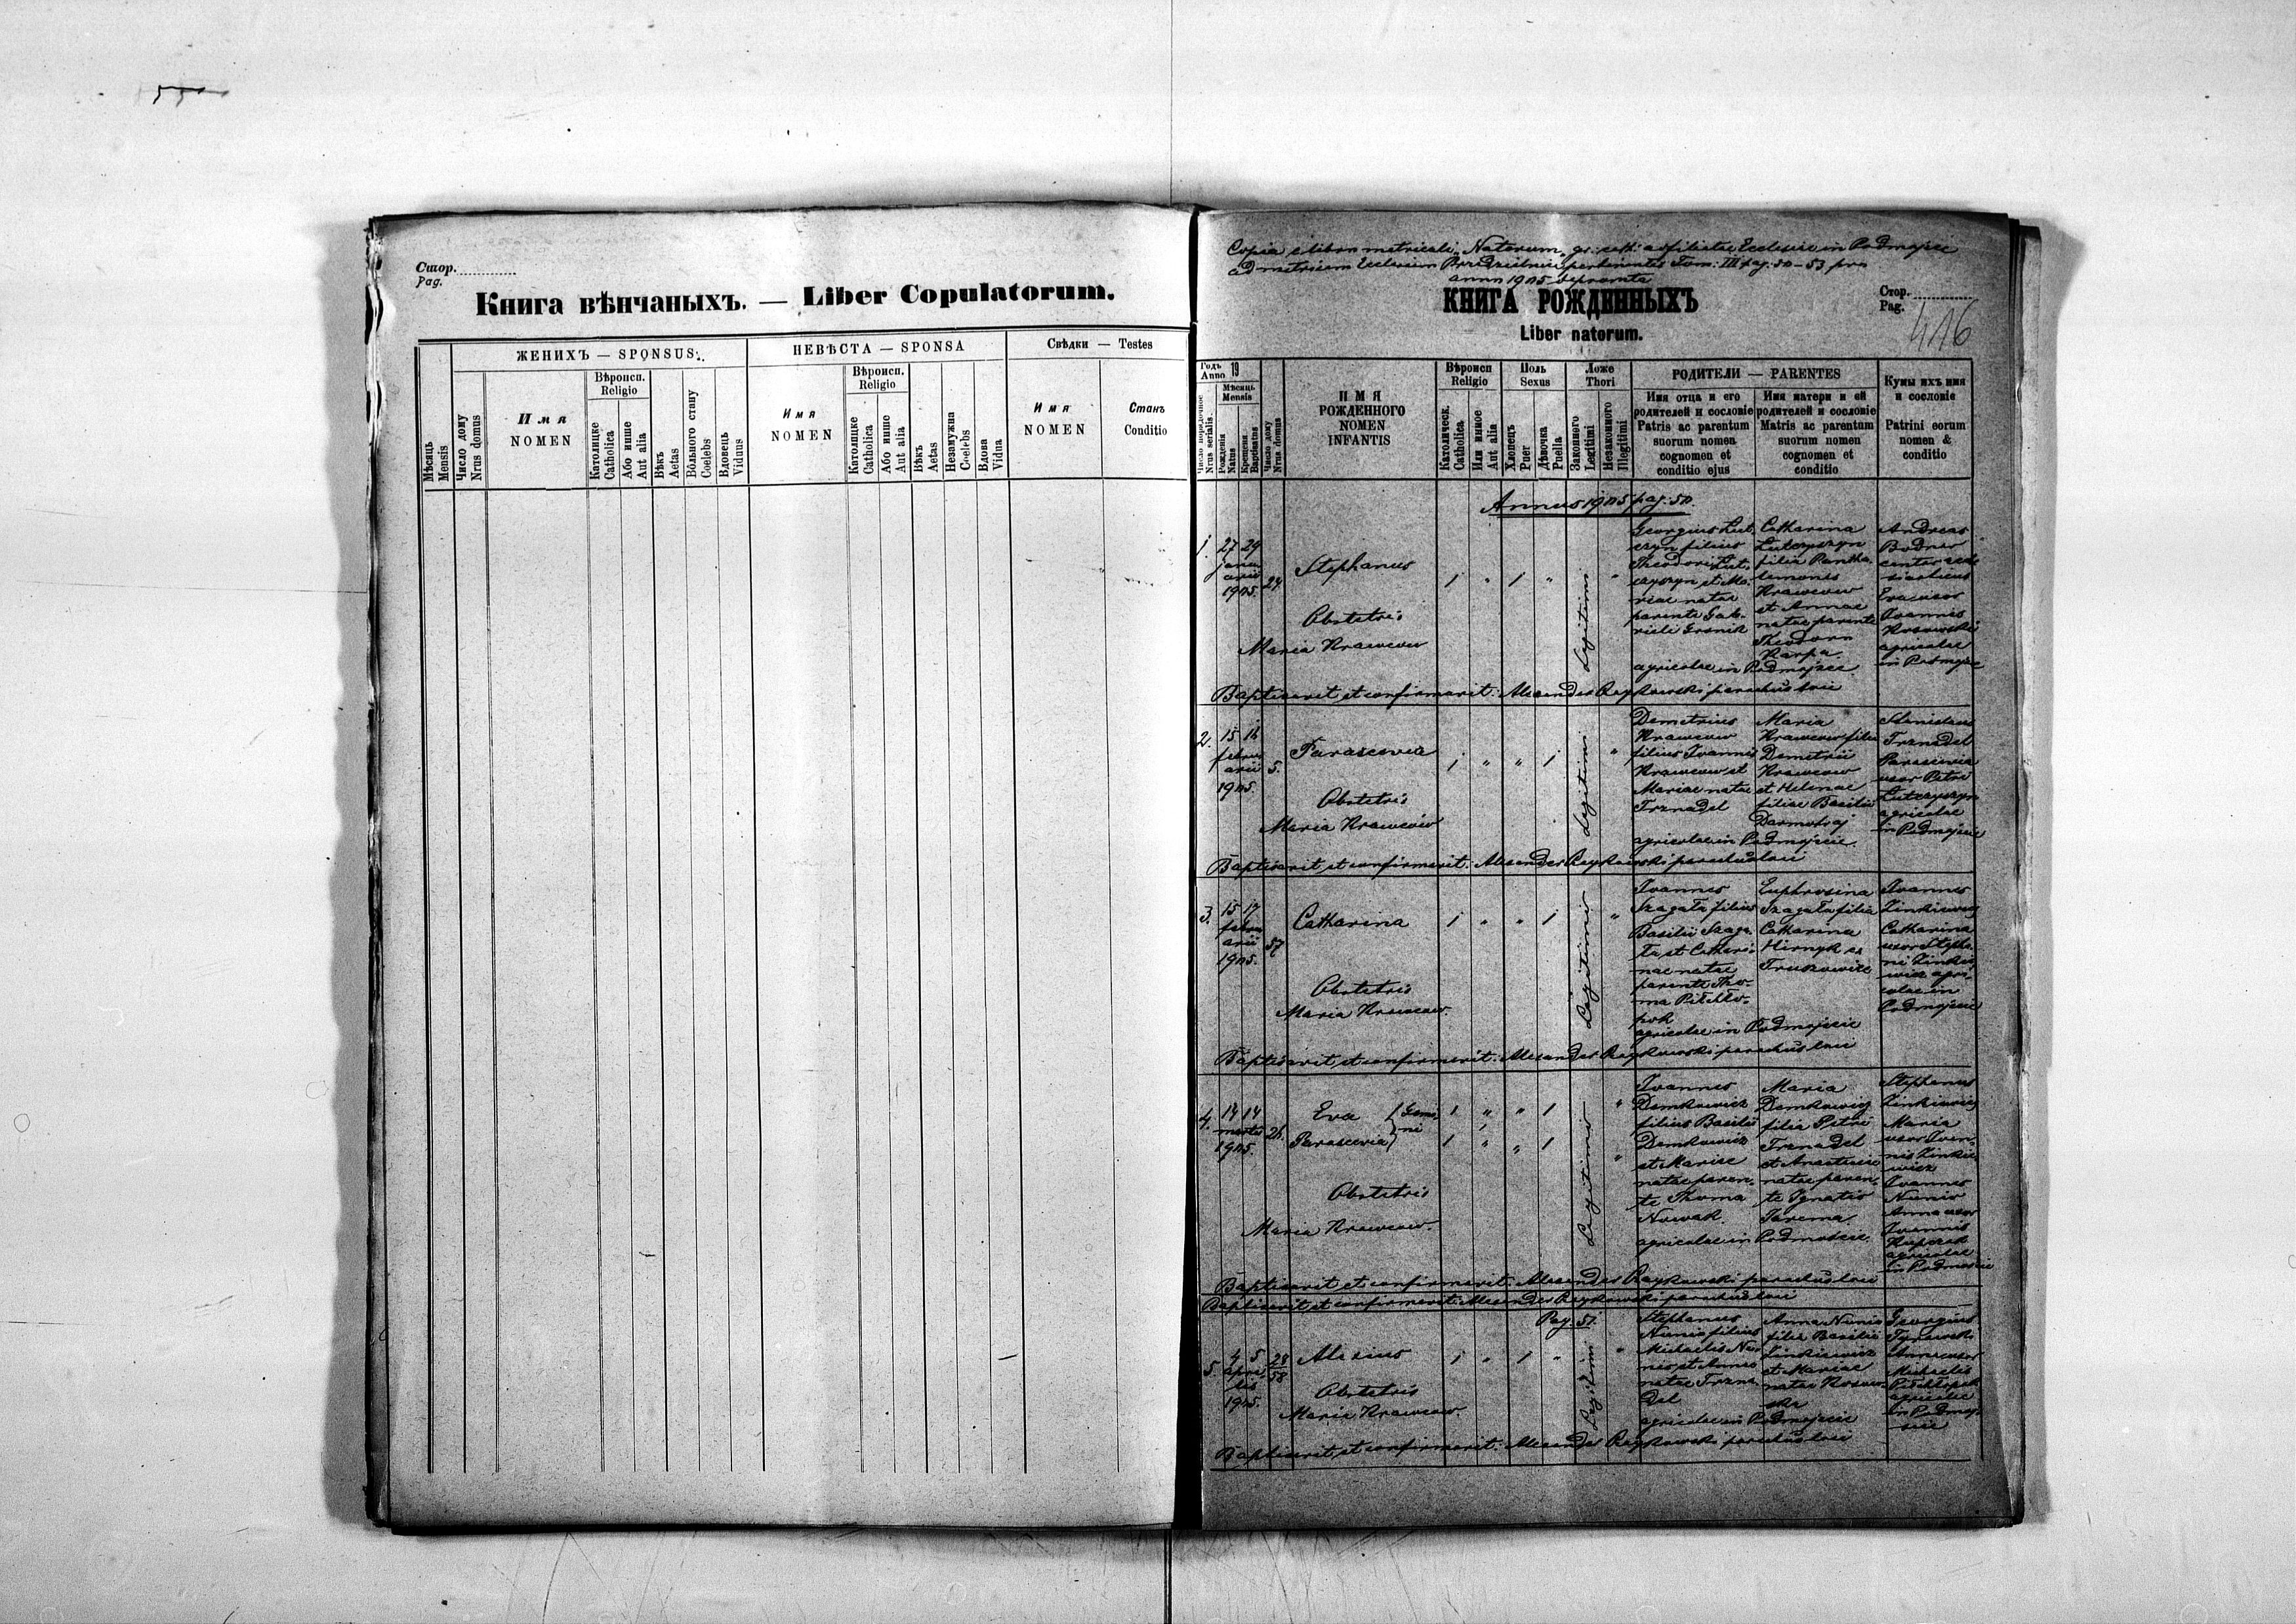 Стор.
Pag.
Книга вѣнчаныхъ. — Liber Copulatorum.
ЖЕНИХЪ — SPONSUS.
НЕВѢСТА — SPONSA
Свѣдки — Testes
Мѣсяць
Mensis
Число дому
Nrus domus
Имя
NOMEN
Вѣроисп.
Religio
Католицке
Catholica
Або инше
Aut alia
Вѣкъ
Aetas
Вôльного стану
Coelebs
Вдовець
Viduus
Имя
NOMEN
Вѣроисп.
Religio
Католицке
Catholica
Або инше
Aut alia
Вѣкъ
Aetas
Незамужна
Coelebs
Вдова
Vidua
Имя
NOMEN
Станъ
Conditio
Copia e libro metricali "Natorum" gr: cath: ad filialem Ecclesiae in Podmojsce
ad matricem Ecclesiam pertinentis Tom: III pag. 50-53 pro
anno 1905 deprompta
КНИГА РОЖДЕННЫХЪ
Liber natorum.
Стор.
Pag.
416
Годъ
Anno 19
Мѣсяць
Mensis
Число порядочное
Nrus serialis
Рожденія
Natus
Крещенія
Baptisatus
Число дому
Nrus domus
ИМЯ
РОЖДЕННОГО
NOMEN
INFANTIS
Вѣроисп
Religio
Католическ.
Catholica
Или инное
Aut alia
Поль
Sexus
Хлопець
Puer
Дѣвочка
Puella
Ложе
Thori
Законного
Legitimi
Незаконного
Illegitimi
РОДИТЕЛИ — PARENTES
Имя отца и его
родителей и сословіе
Patris ac parentum
suorum nomen
cognomen et
conditio ejus
Имя матери и ей
родителей и сословіе
Matris ac parentum
suorum nomen
cognomen et
conditio
Кумы ихъ имя
и сословіе
Patrini eorum
nomen &
conditio
Annus 1905 pag. 50.
1.
27 29
janu
arii
1905.
24
Stephanus
Obstetrix
Maria Krawców
1 " 1 "
Legitimi
"
Georgius Lut
czyn filius
Theodori Lut
czyszyn et Ma
riae natae
parente Gab
rieli Grsnik
Catharina
Lutczyszyn
filia Pantha
lemonis
Krawców
et Annae
natae parente
Theodoro
Karpa
agricolae in Podmojsce
Andreas
Bodnar
cantor eccle
siasticus
Eva uxor
Ivannis
Kosowski
agricolae
in Podmojsce
Baptisavit et confirmavit: Alexander Raykowski parochus loci
2.
15 16
febru
arii
1905.
5.
Parascevia
Obstetrix
Maria Krawców
1 " " 1
Legitimi
"
Demetrius
Krawców
filius Ivannis
Krawców et
Mariae natae
Trznadel
Maria
Krawców filia
Demetrii
Krawców
et Helenae
filiae Basilii
Darmohraj
agricolae in Podmojsce
Stanislaus
Trznadel
Parascevia
uxor Petri
Lutczyszyn
agricolae
in Podmojsce
Baptisavit et confirmavit: Alexander Raykowski parochus loci
3.
15 17
febru
arii
1905.
57
Catharina
Obstetrix
Maria Krawców.
1 " " 1
Legitimi
"
Ivannes
Szagała filius
Basilii Szaga
ła et Cathari
nae natae
parente Tho
ma Pitchło
pok
Euphrosina
Szagała filia
Catharina
Hirnyk ex
agricolae in Podmojsce
Ivannes
Zinkiewicz
Catharina
uxor Stepha
ni Zinkie
wicz agri
colae in
Podmojsce
Baptisavit et confirmavit: Alexander Raykowski parochus loci
4.
14 14
martii
1905.
26.
Eva } Gemi
Parascevia } ni
Obstetrix
Maria Krawców.
1 " " 1
1 " " 1
Legitimi
"
"
Ivannes
Demkowicz
filius Basilii
Demkowicz
et Mariae
natae paren
te Thoma
Nowak
Maria
Demkowicz
filia Petri
Trznadel
et Anastasiae
natae paren
te Ignatio
Jarema
agricolae in Podmojsce
Stephanus
Zinkiewicz
Maria
uxor Ivan
nis Zinkie
wicz
Ivannes
Nunis
Anna uxor
Ivannis
Kupczak
agricolae
in Podmojsce
Baptisavit et confirmavit: Alexander Raykowski parochus loci
Baptisavit et confirmavit: Alexander Raykowski parochus loci
Pag. 51.
5.
4 5
apri
lis
1905.
28
58
Alexius
Obstetrix
Maria Krawców.
1 " 1 "
Legitimi
"
Stephanus
Nunis filius
Michaelis Nu
nis et Annae
natae Trzna
del
Anna Nunis
filia Basilii
Zinkiewicz
et Mariae
natae Kosow
ska
agricolae in Podmojsce
Georgius
Tyrawski
Anna uxor
Michaelis
Pitchłopok
agricolae
in Podmoj
sce
Baptisavit et confirmavit: Alexander Raykowski parochus loci